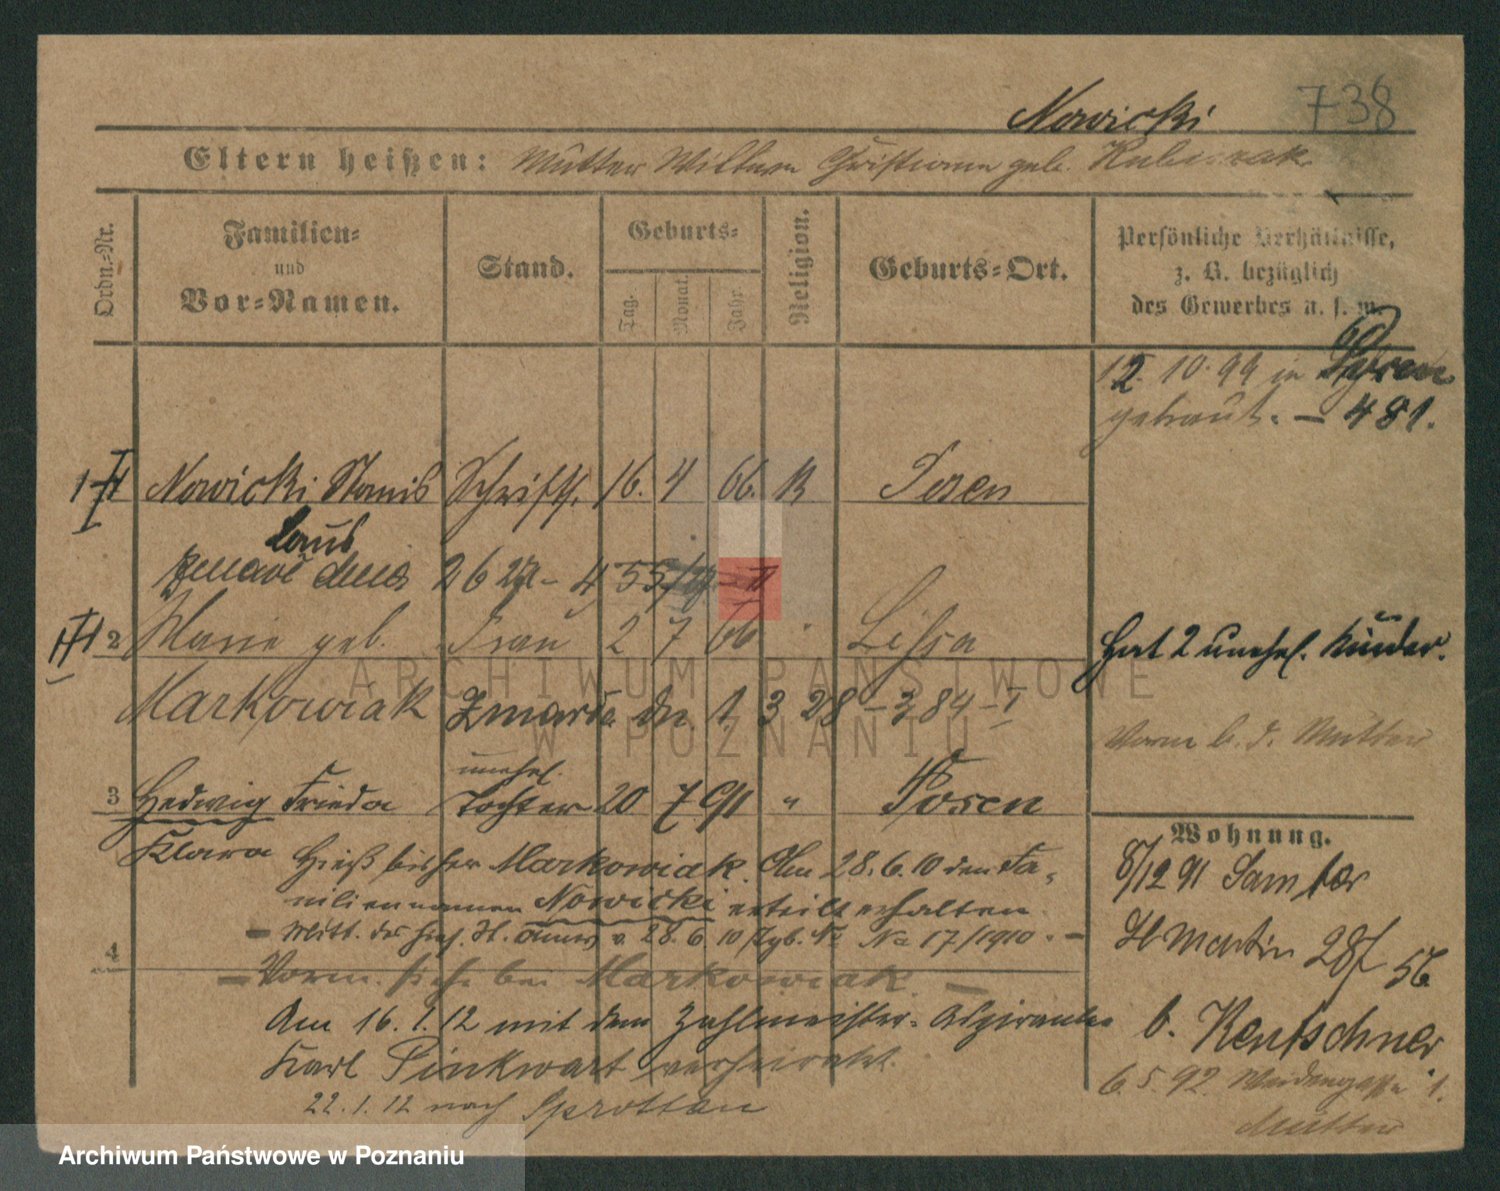 Nowicki 738
Eltern heißen: Mutter Christiane geb.
Ordn.-Nr.
Familien-
und
Vor-Namen.
Stand.
Geburts-
Tag.
Monat.
Jahr.
Religion.
Geburts-Ort.
Persönliche Verhältnisse,
z. B. bezüglich
des Gewerbes u. s. w.
12. 10. 99 in
getraut. — 481.
1 Nowicki Stanis Schrifts. 16. 4 66. K Posen
laus
26 4
2 Marie geb. Frau 2 7 66 " Lissa
Hat 2 unehel. Kinder.
Markowiak 1, 3 28 - 384 - I
Vorm b. d. Mutter
unehel.
3 Hedwig Frieda Tochter 20 7 91 " Posen
Klara
Hieß bisher Markowiak. Am 28. 6. 10 den Fa-
miliennamen Nowicki erteilt erhalten.
— Mitt. des v. 28. 6. 10 Tgb. No 17/1910. —
4
— Vorm. siehe bei Markowiak. —
Am 16. 1. 12 mit dem Zahlmeister-Aspiranten
Karl Pinkwart verheiratet.
22. 1. 12 nach Sprottau
Wohnung.
8/12 91 Samter
St Martin 28
56
b. Rentschner
6 5. 92. Weidengasse 1.
Mutter
ARCHIWUM PAŃSTWOWE
W POZNANIU
Archiwum Państwowe w Poznaniu